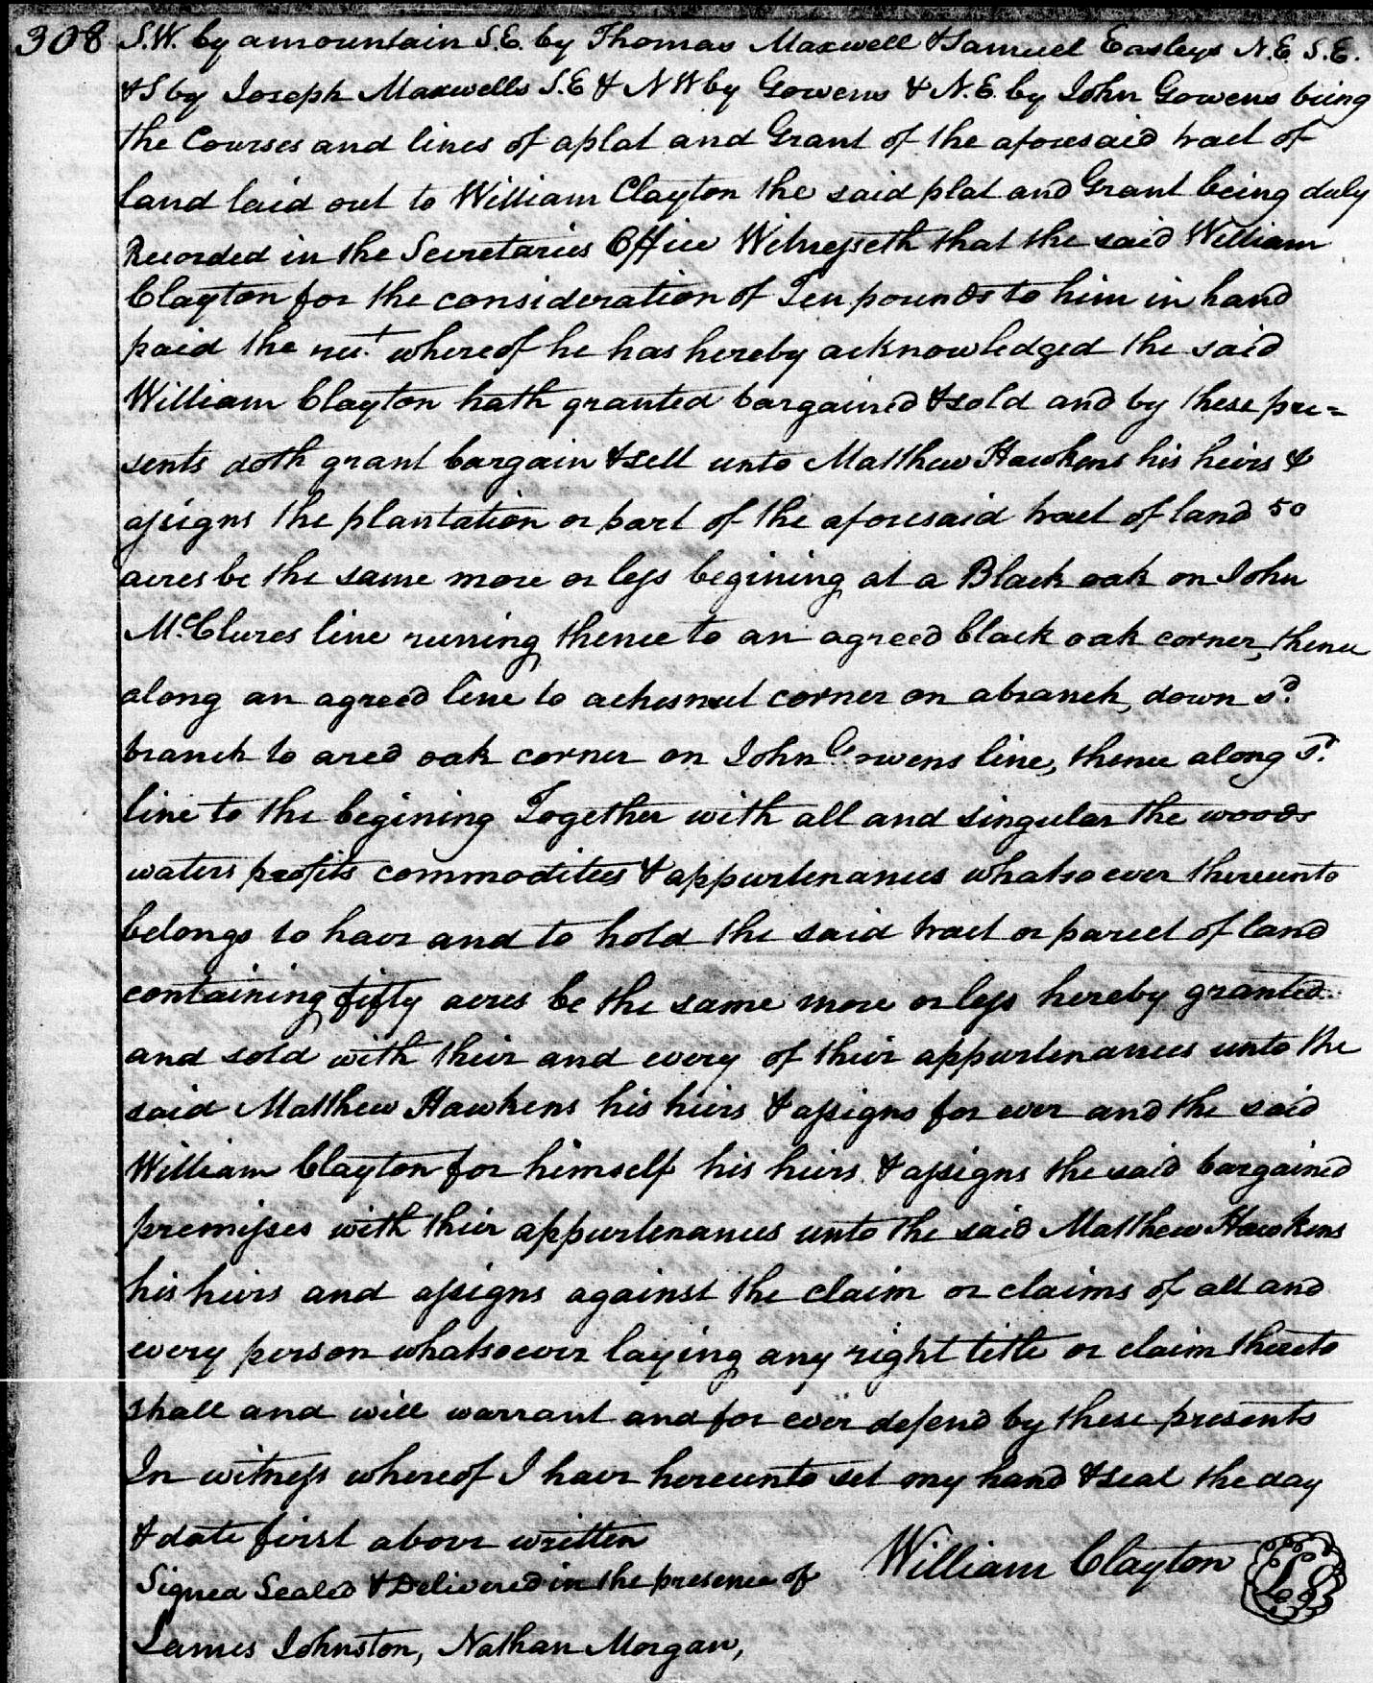 308 S.W. by a mountain S.E. by Thomas Maxwell & Samuel Easleys N.E. S.E.
& S by Joseph Maxwells S.E & N W by Gowens & N.E. by John Gowens being
the Courses and lines of a plat and Grant of the aforesaid tract of
land laid out to William Clayton the said plat and Grant being duly
Recorded in the Secretaries Office Witnesseth that the said William
Clayton for the consideration of Ten pounds to him in hand
paid the rect. whereof he has hereby acknowledged the said
William Clayton hath granted bargained & sold and by these pre=
sents doth grant bargain & sell unto Matthew Hawkens his heirs &
assigns the plantation or part of the aforesaid tract of land 50
acres be the same more or less begining at a Black oak on John
McClures line runing thence to an agreed black oak corner, thence
along an agreed line to a chesnut corner on a branch, down sd.
branch to a red oak corner on John Gowens line, thence along sd.
line to the begining Together with all and singular the woods
waters profits commodities & appurtenances whatsoever thereunto
belongs to have and to hold the said tract or parcel of land
containing fifty acres be the same more or less hereby granted
and sold with their and every of their appurtenances unto the
said Matthew Hawkens his heirs & assigns for ever and the said
William Clayton for himself his heirs & assigns the said bargained
premisses with their appurtenances unto the said Matthew Hawkens
his heirs and assigns against the claim or claims of all and
every person whatsoever laying any right title or claim thereto
shall and will warrant and for ever defend by these presents
In witness whereof I have hereunto set my hand & seal the day
& date first above written
Signed Sealed & Delivered in the presence of William Clayton LS
James Johnston, Nathan Morgan,